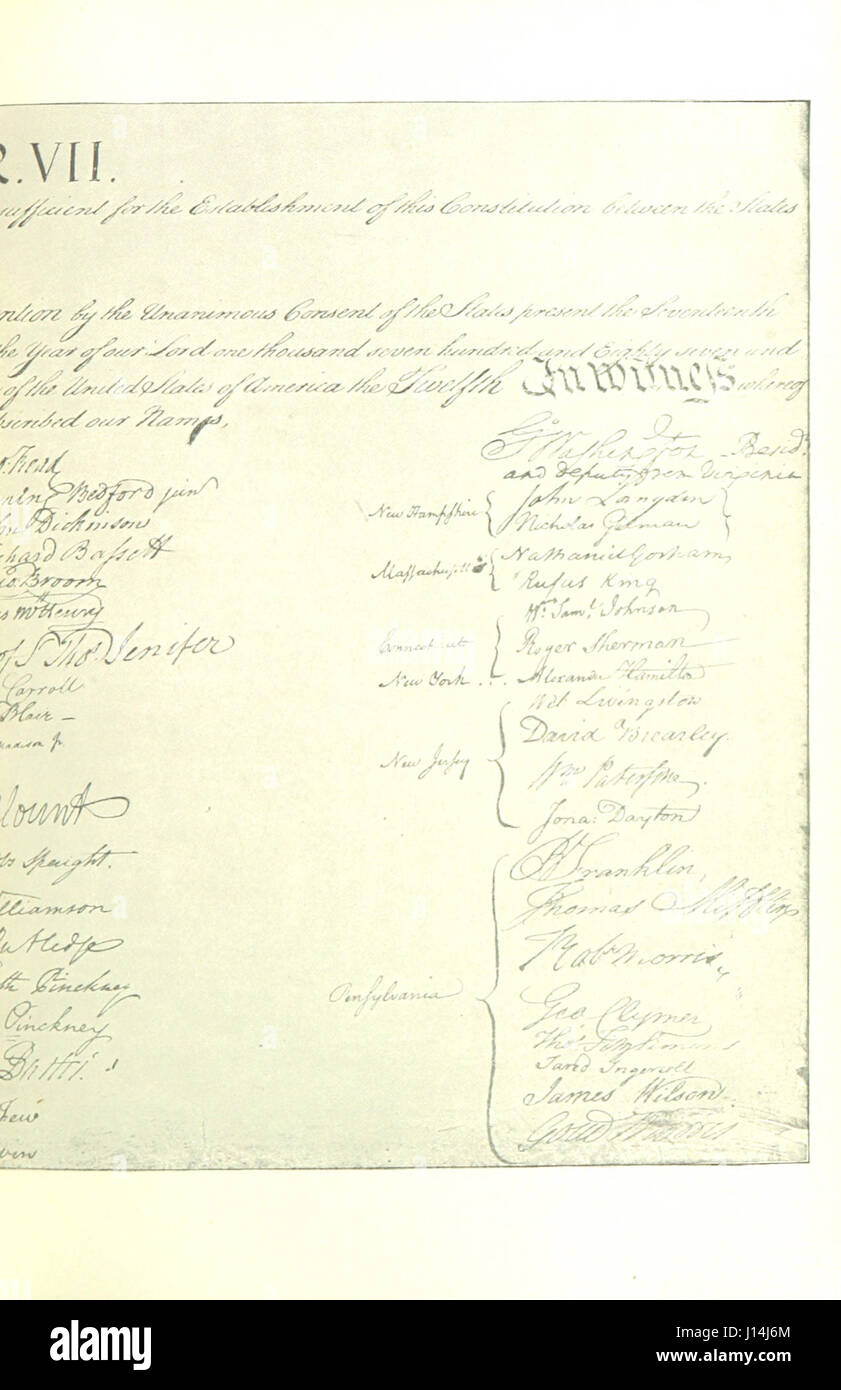 R. VII.
sufficient for the Establishment of this Constitution between the States
ention by the Unanimous Consent of the States present the Seventeenth
he Year of our Lord one thousand seven hundred and Eighty seven and
of the United States of America the Twelfth In Witness whereof
bscribed our Names,
Go: Washington - Presidt
and deputy from Virginia
New Hampshire
John Langdon
Nicholas Gilman
Massachusetts
Nathaniel Gorham
Rufus King
Connecticut
Wm Saml Johnson
Roger Sherman
New York . . . Alexander Hamilton
New Jersey
Wil: Livingston
David Brearley.
Wm Paterson.
Jona: Dayton
Pensylvania
B Franklin,
Thomas Mifflin
Robt Morris
Geo. Clymer
Thos FitzSimons
Jared Ingersoll
James Wilson.
Gouv Morris
o: Read
ning Bedford jun
hn Dickinson
chard Bassett
co: Broom
es McHenry
of St Thos Jenifer
Carroll
Blair —
Madison Jr.
lount
bs Spaight.
illiamson
utledge
th Pinckney
Pinckney
Butler.
Few
win
alamy
Image ID: J14J6M
www.alamy.com